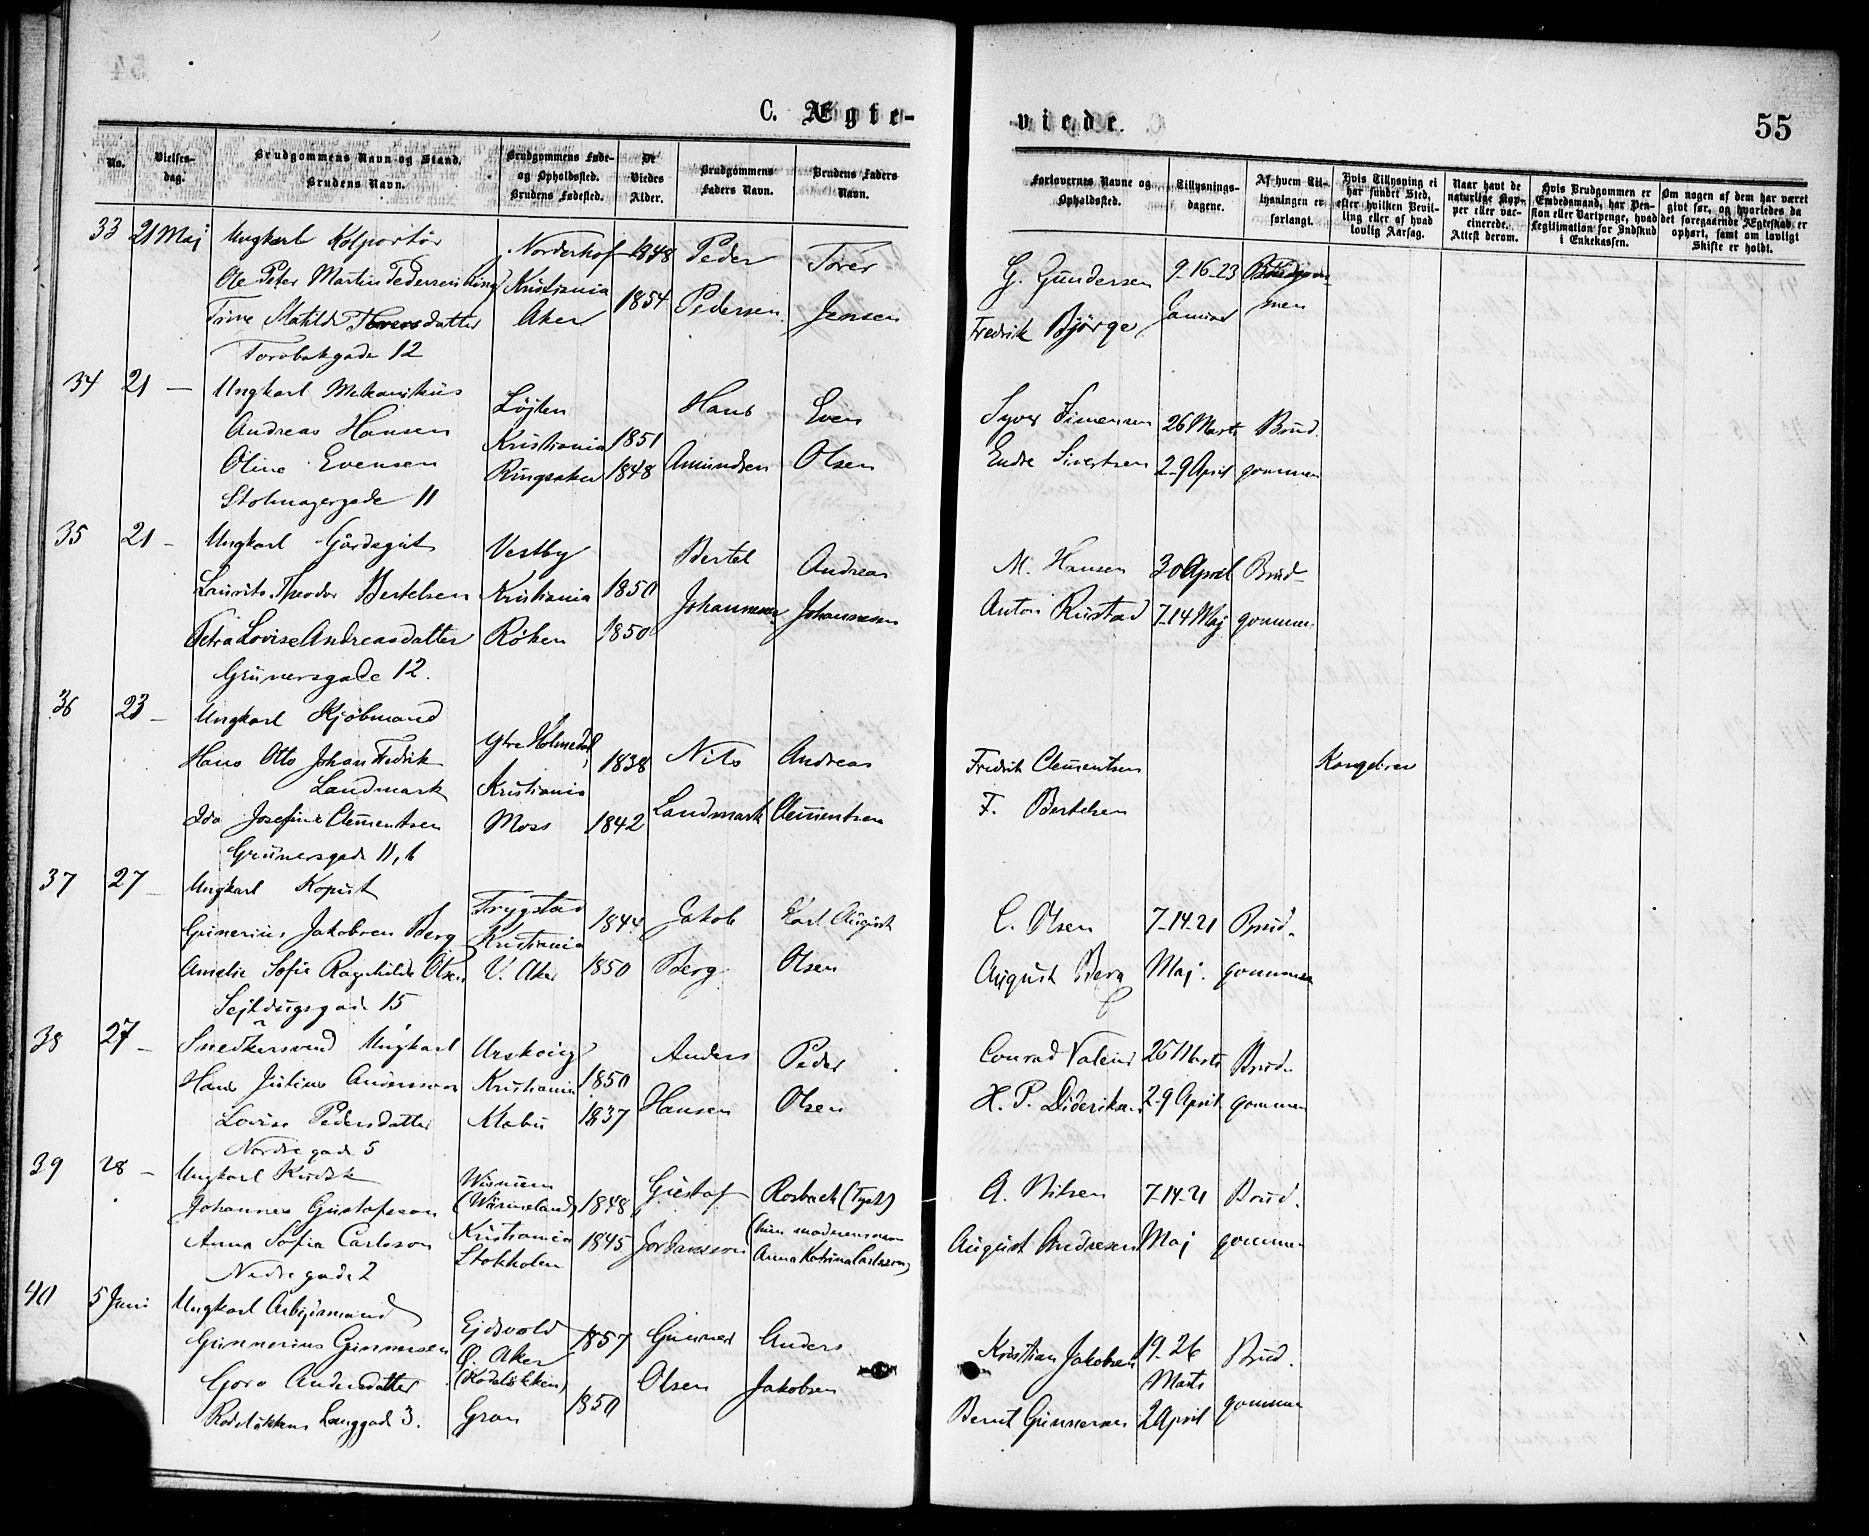 C. Ægte-
viede.
55
No.
Vielses-
dag.
Brudgommens Navn og Stand.
Brudens Navn.
Brudgommens Føde-
og Opholdssted.
Brudens Fødested.
De
Viedes
Alder.
Brudgommens
Faders Navn.
Brudens Faders
Navn.
Forlovernes Navne og
Opholdssted.
Tillysnings-
dagene.
Af hvem Til-
lysningen er
forlangt.
Hvis Tillysning ei
har fundet Sted,
efter hvilken Bevil-
ling eller af hvad
lovlig Aarsag.
Naar havt de
naturlige Kop-
per eller vac-
cinerede.
Attest derom.
Hvis Brudgommen er
Embedsmand, har Pen-
sion eller Vartpenge, hvad
Legitimation for Indskud
i Enkekassen.
Om nogen af dem har været
givt før, og hvorledes da
det foregaaende Ægteskab er
ophørt, samt om lovligt
Skifte er holdt.
33 21 Maj Ungkarl Kolportör Norderhof 1848 Peder Torer G. Gundersen 9-16-23 Brudgom-
Ole Peter Martin Pedersen Ring Kristiania Januar men
Trine Matilde Toversdatter Aker 1854 Pedersen Jensen Fredrik Björge
Torvbakgade 12
34 21 — Ungkarl Mekanikus Löjten Hans Even Syver Simensen 26 Marts Brud-
Andreas Hansen Kristiania 1851
Oline Evensen Ringsaker 1848 Amundsen Olsen Endre Sivertsen 2-9 April gommen
Stolmagergade 11
35 21 — Ungkarl Gårdsgut Vestby Bertel Andreas M. Hansen 30 April Brud-
Laurits Theodor Bertelsen Kristiania 1850
Petra Lovise Andreasdatter Röken 1850 Johannesen Johannesen Anton Rustad 7-14 Maj gommen
Grünersgade 12.
36 23 — Ungkarl Kjöbmand
Hans Otto Johan Fredrik Ytre Holmedal 1838 Nils Andreas Fredrik Clementsen Kongebrev
Landmark Kristiania
Ida Josefine Clementsen Moss 1842 Landmark Clementsen F. Bertelsen
Grünersgade 11, b
37 27 — Ungkarl Kopist Trygstad 1844 Jakob Karl August C. Olsen 7-14-21 Brud-
Jakobsen Berg Kristiania
Amelie Sofie Ragnhilde Olsen V. Aker 1850 Berg Olsen August Berg Maj. gommen
Sejldugsgade 15
38 27 — Snedkersvend Ungkarl Urskoug Anders Peder Conrad 26 Marts Brud-
Hans Julius Andersson Kristiania 1850
Lovise Pedersdatter Klebu 1837 Hansen Olsen H. P. Dideriksen 2-9 April gommen
Nordregade 5
39 28 — Ungkarl Kudsk Gustaf Rosbach (Tysk) A. Nilsen 7-14-21 Brud-
Johannes Gustafsson (Wärmeland) 1848
Anna Sofia Carlsson Kristiania 1845 (hun Anna Katrina Carlsson) August Andresen Maj gommen
Nedregade 2 Stokholm
40 5 Juni Ungkarl Arbejdsmand Ejdsvold 1857 Gunner Anders Kristian Jakobsen 19-26 Brud-
Gunnerius Gunnersen Ö. Aker Marts
Goro Andersdatter (Rodelökken) Olsen Jakobsen
Rodelökkens Langgade 3. Gran 1850 Bernt Gunnersen 2 April gommen